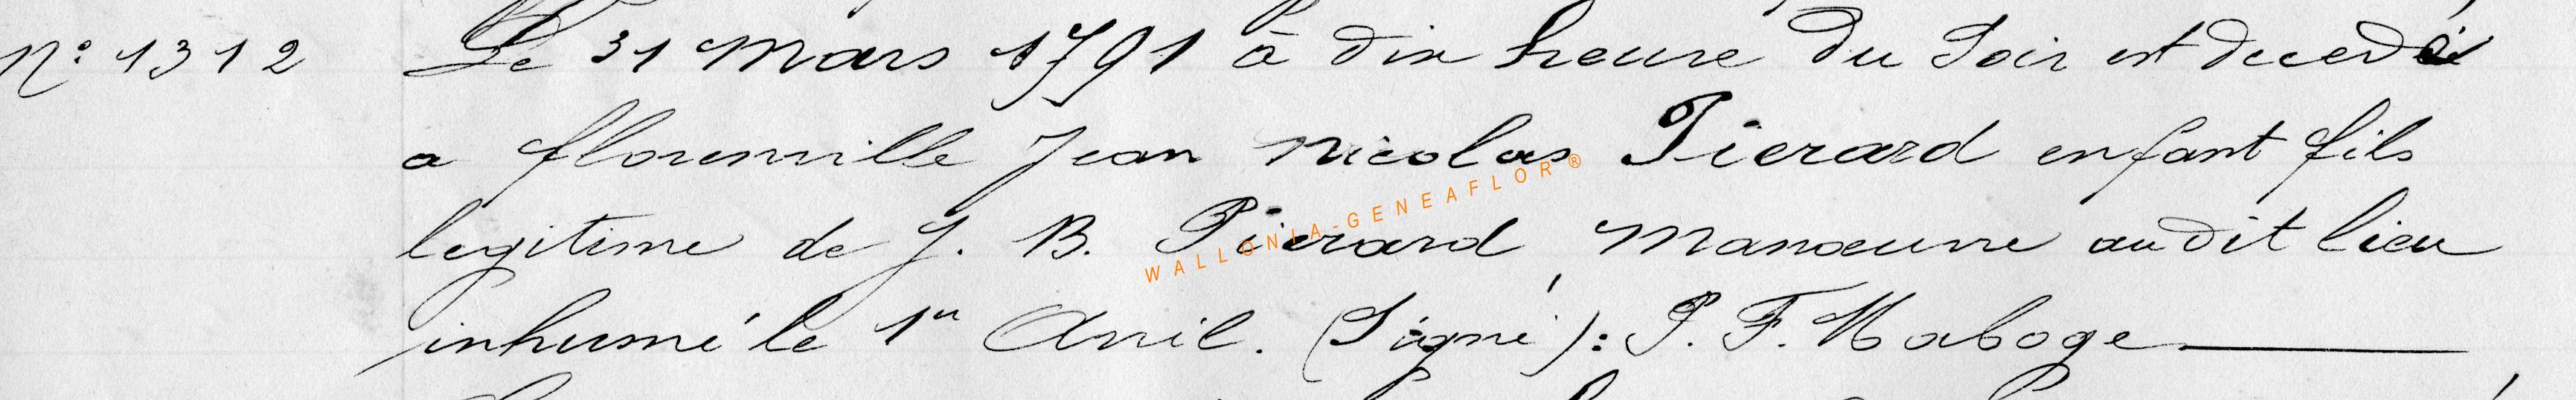 N° 1312 Le 31 Mars 1791 à dix heure du Soir est decedé
a florenville Jean Nicolas Pierard enfant fils
legitime de J. B. Pierard, Manœuvre audit lieu
WALLONIA-GENEAFLOR®
inhumé le 1er Avril. (Signé): P. F. Maboge